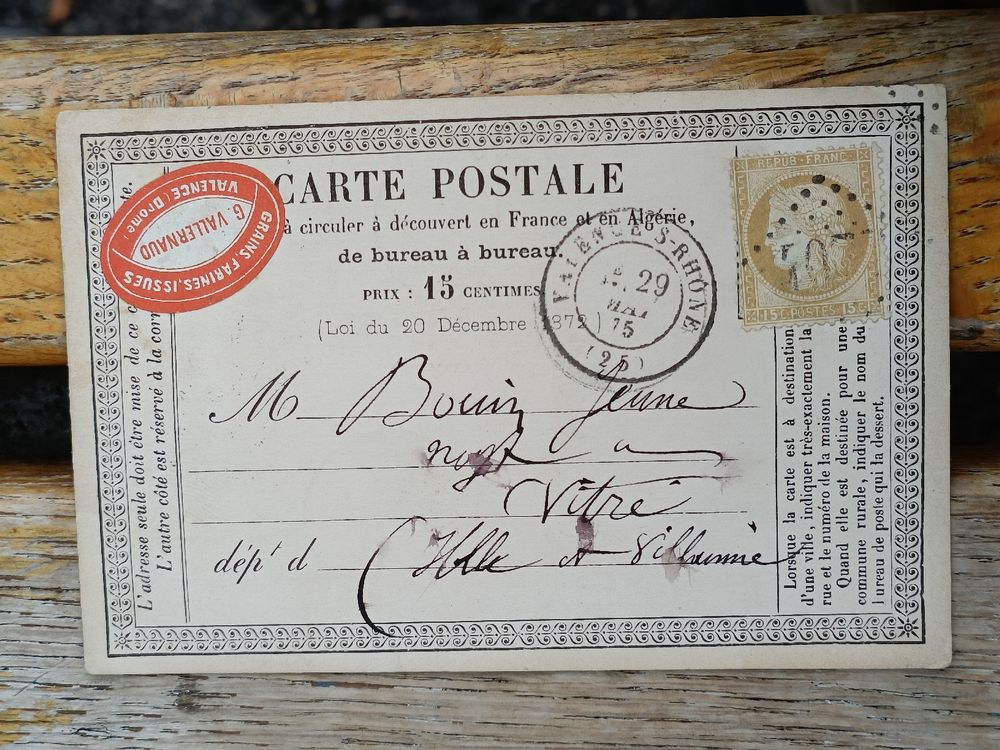 CARTE POSTALE
à circuler à découvert en France et en Algérie,
de bureau à bureau.
PRIX : 15 CENTIMES
(Loi du 20 Décembre 1872)
GRAINS, FARINES, ISSUES
G. VALLERNAUD
VALENCE (Drome)
VALENCE-S-RHÔNE
29
MAI
75
(25)
REPUB. FRANC.
15 C. POSTES 15 C.
M Bouin Jeune
negt a
Vitré
dépt d (Ille et Villaine
L'adresse seule doit être mise de ce c te.
L'autre côté est réservé à la corr
Lorsque la carte est à destination
d'une ville, indiquer très-exactement la
rue et le numéro de la maison.
Quand elle est destinée pour une
commune rurale, indiquer le nom du
bureau de poste qui la dessert.